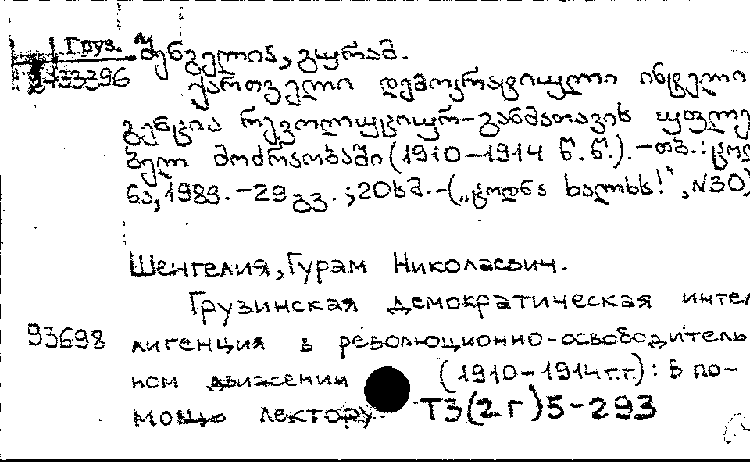 Груз.
შენგელია, გურამ.
433396
ქართველი დემოკრატიული ინტელი
გენცია რევოლუციურ-განმათავის უფლე
ბელ მოძრაობაში (1910-1914 წ.წ.).-თბ.: ცოდ
ნა, 1989.-29 გვ.; 20სმ.-(„ცოდნა ხალხს!", N30)
Шенгелия, Гурам Николаевич.
Грузинская демократическая интел
93698 лигенция в революционно-освободитель
ном движении (1910-1914 г.г): В по-
мощь лектору. Т3(2г)5-293